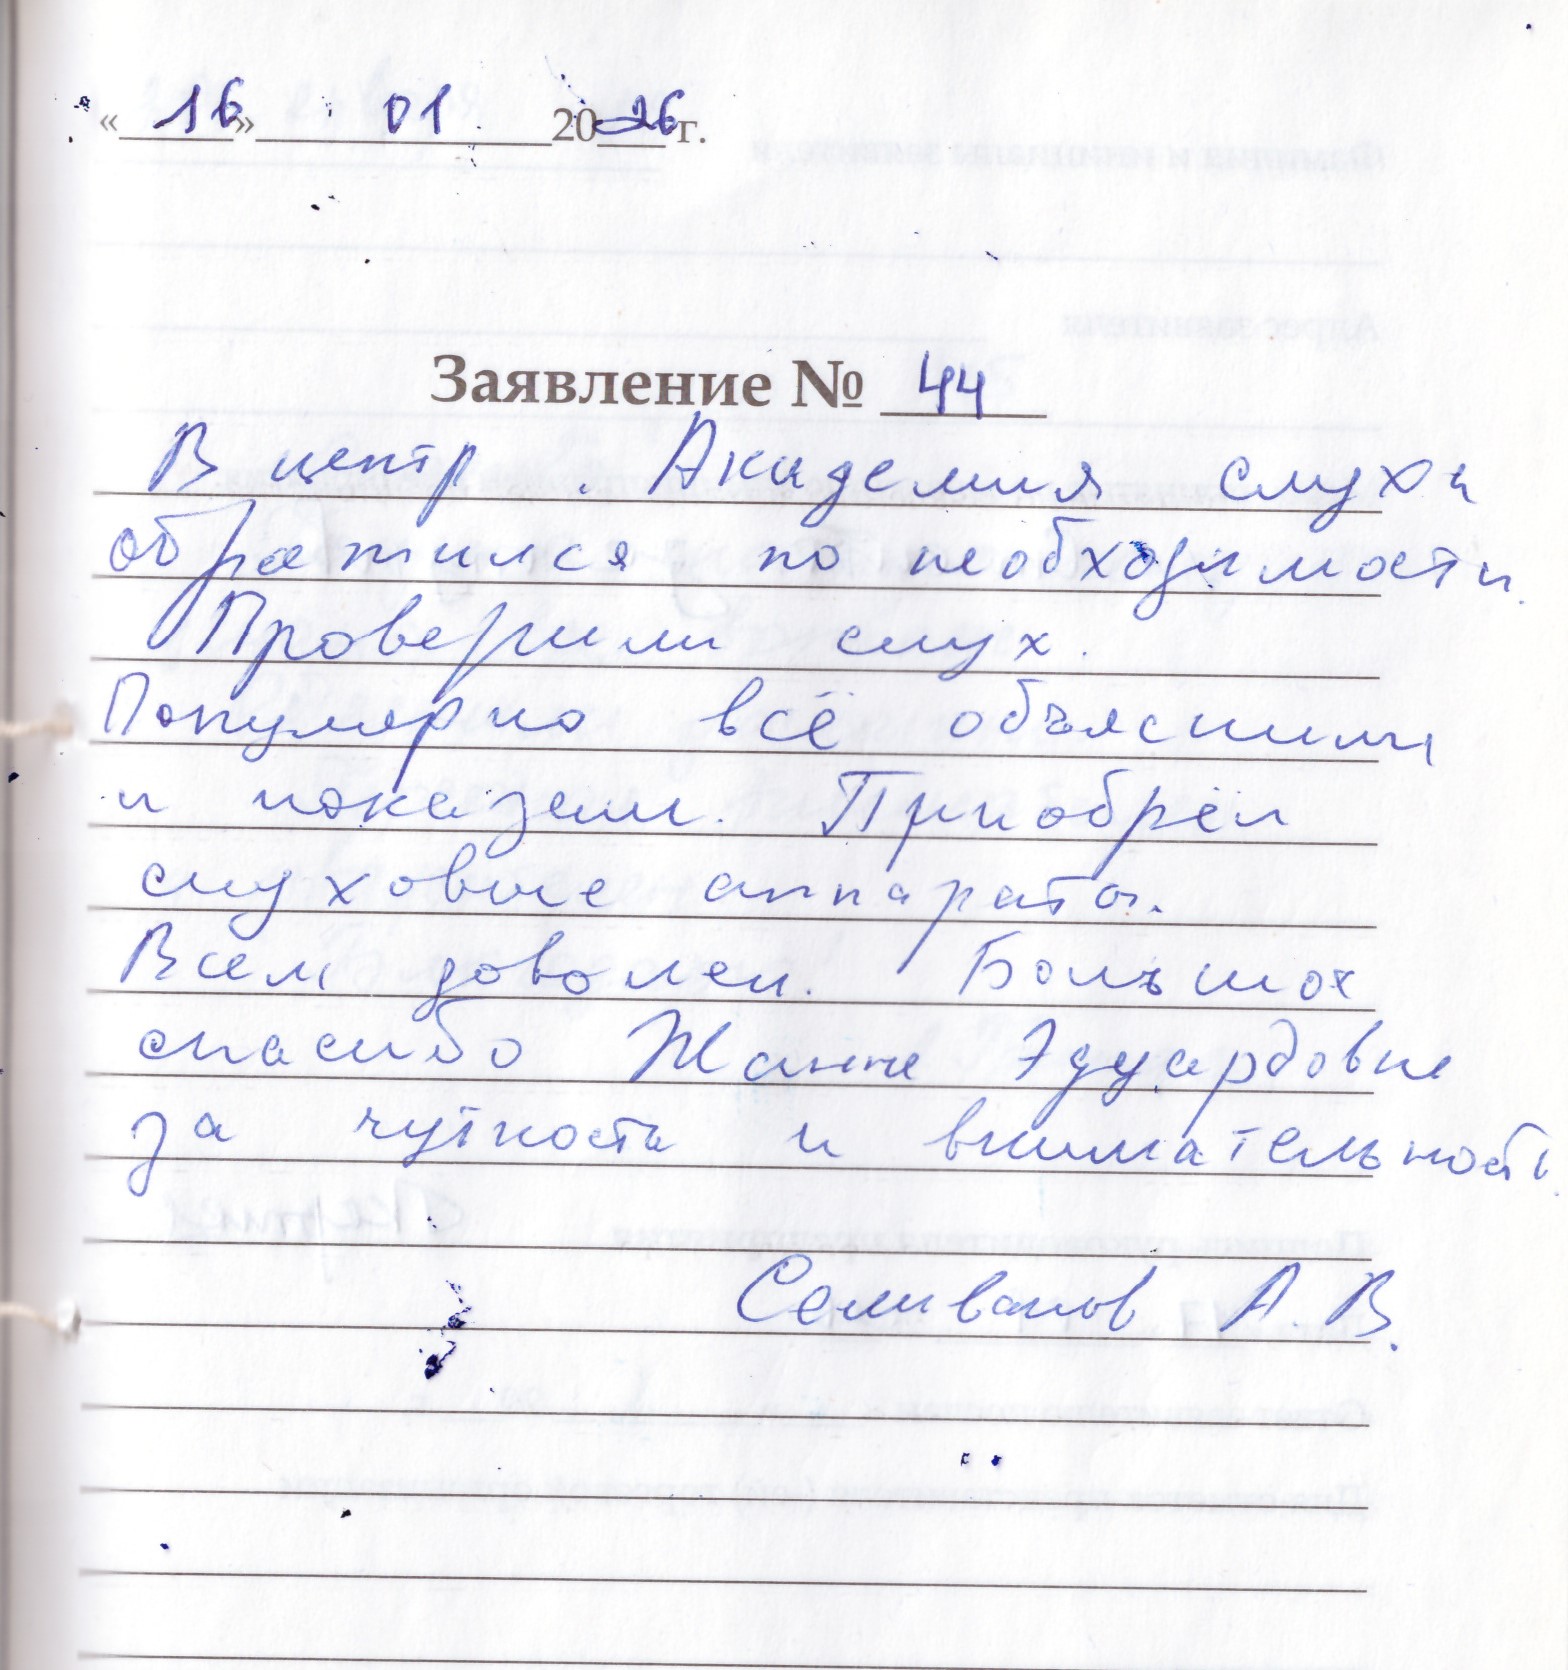 «16» 01 2026 г.
Заявление № 44
В центр. Академия слуха
обратился по необходимости.
Проверили слух.
Популярно всё объяснили
и показали. Приобрёл
слуховые аппараты.
Всем доволен. Большое
спасибо Жанне Эдуардовне
за чуткость и внимательность.
Селиванов А. В.